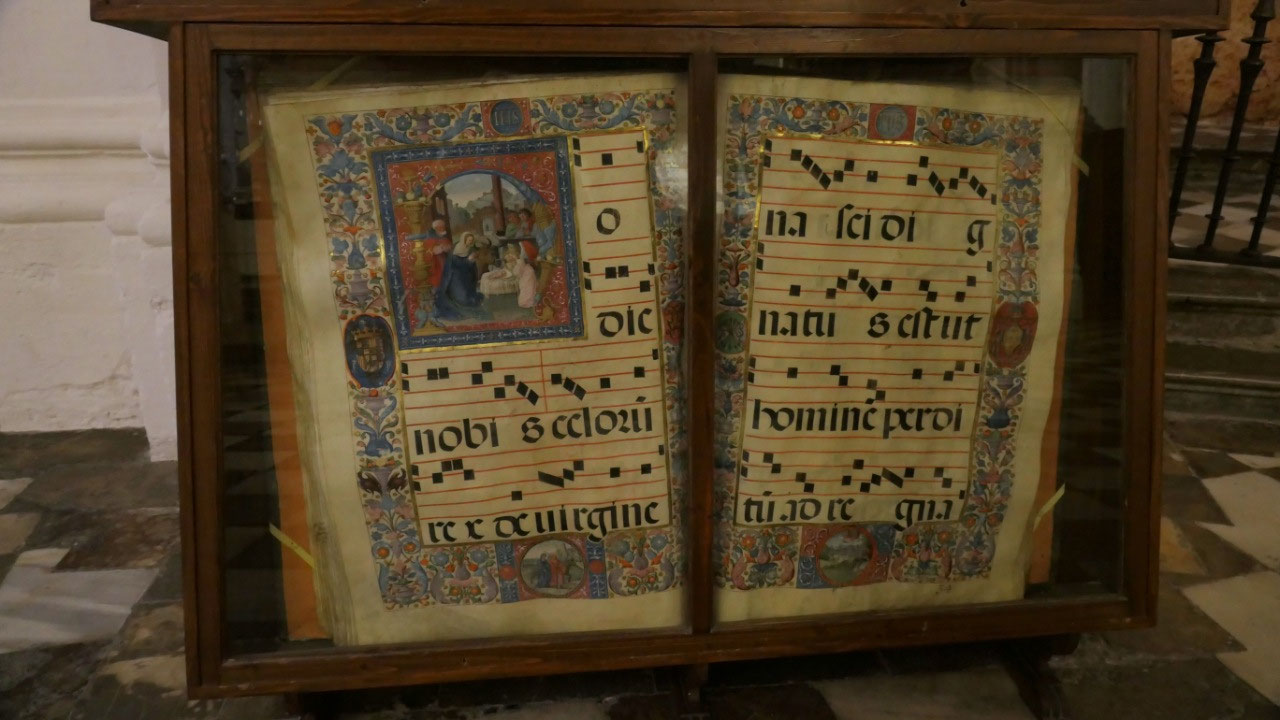 IHS
o
die
nobi s celorū
re x de uirgine
na sci di g
natu s est ut
hominē perdi
tū ad re gna